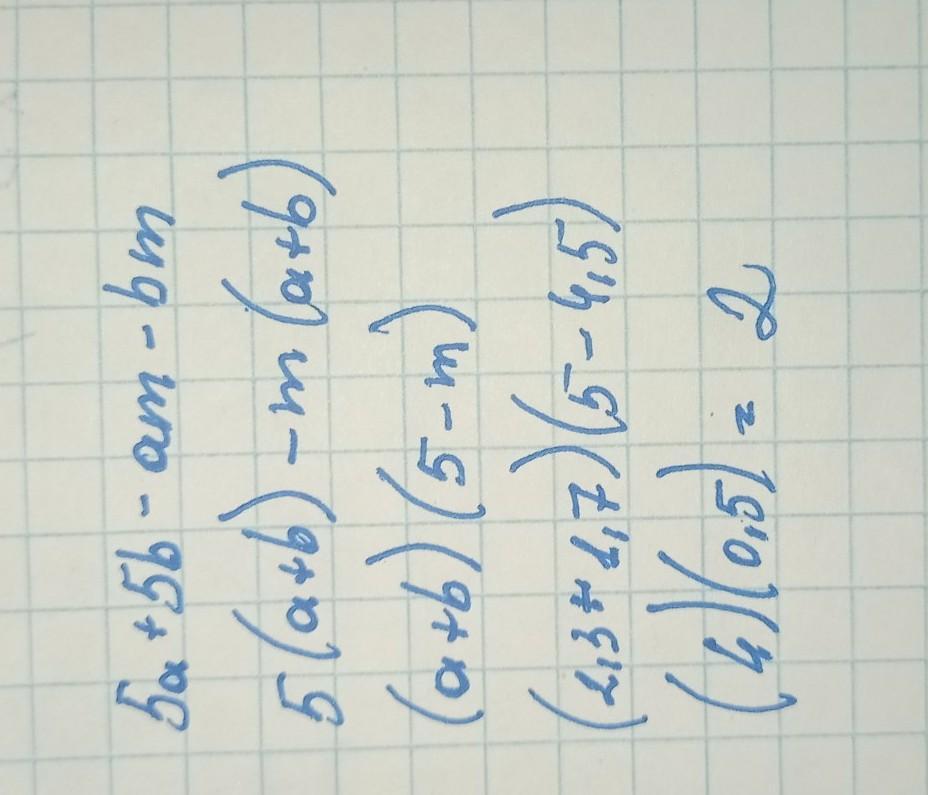 5a + 5b - am - bm
5(a+b) - m(a+b)
(a+b)(5-m)
(2,3+1,7)(5-4,5)
(4)(0,5) = 2